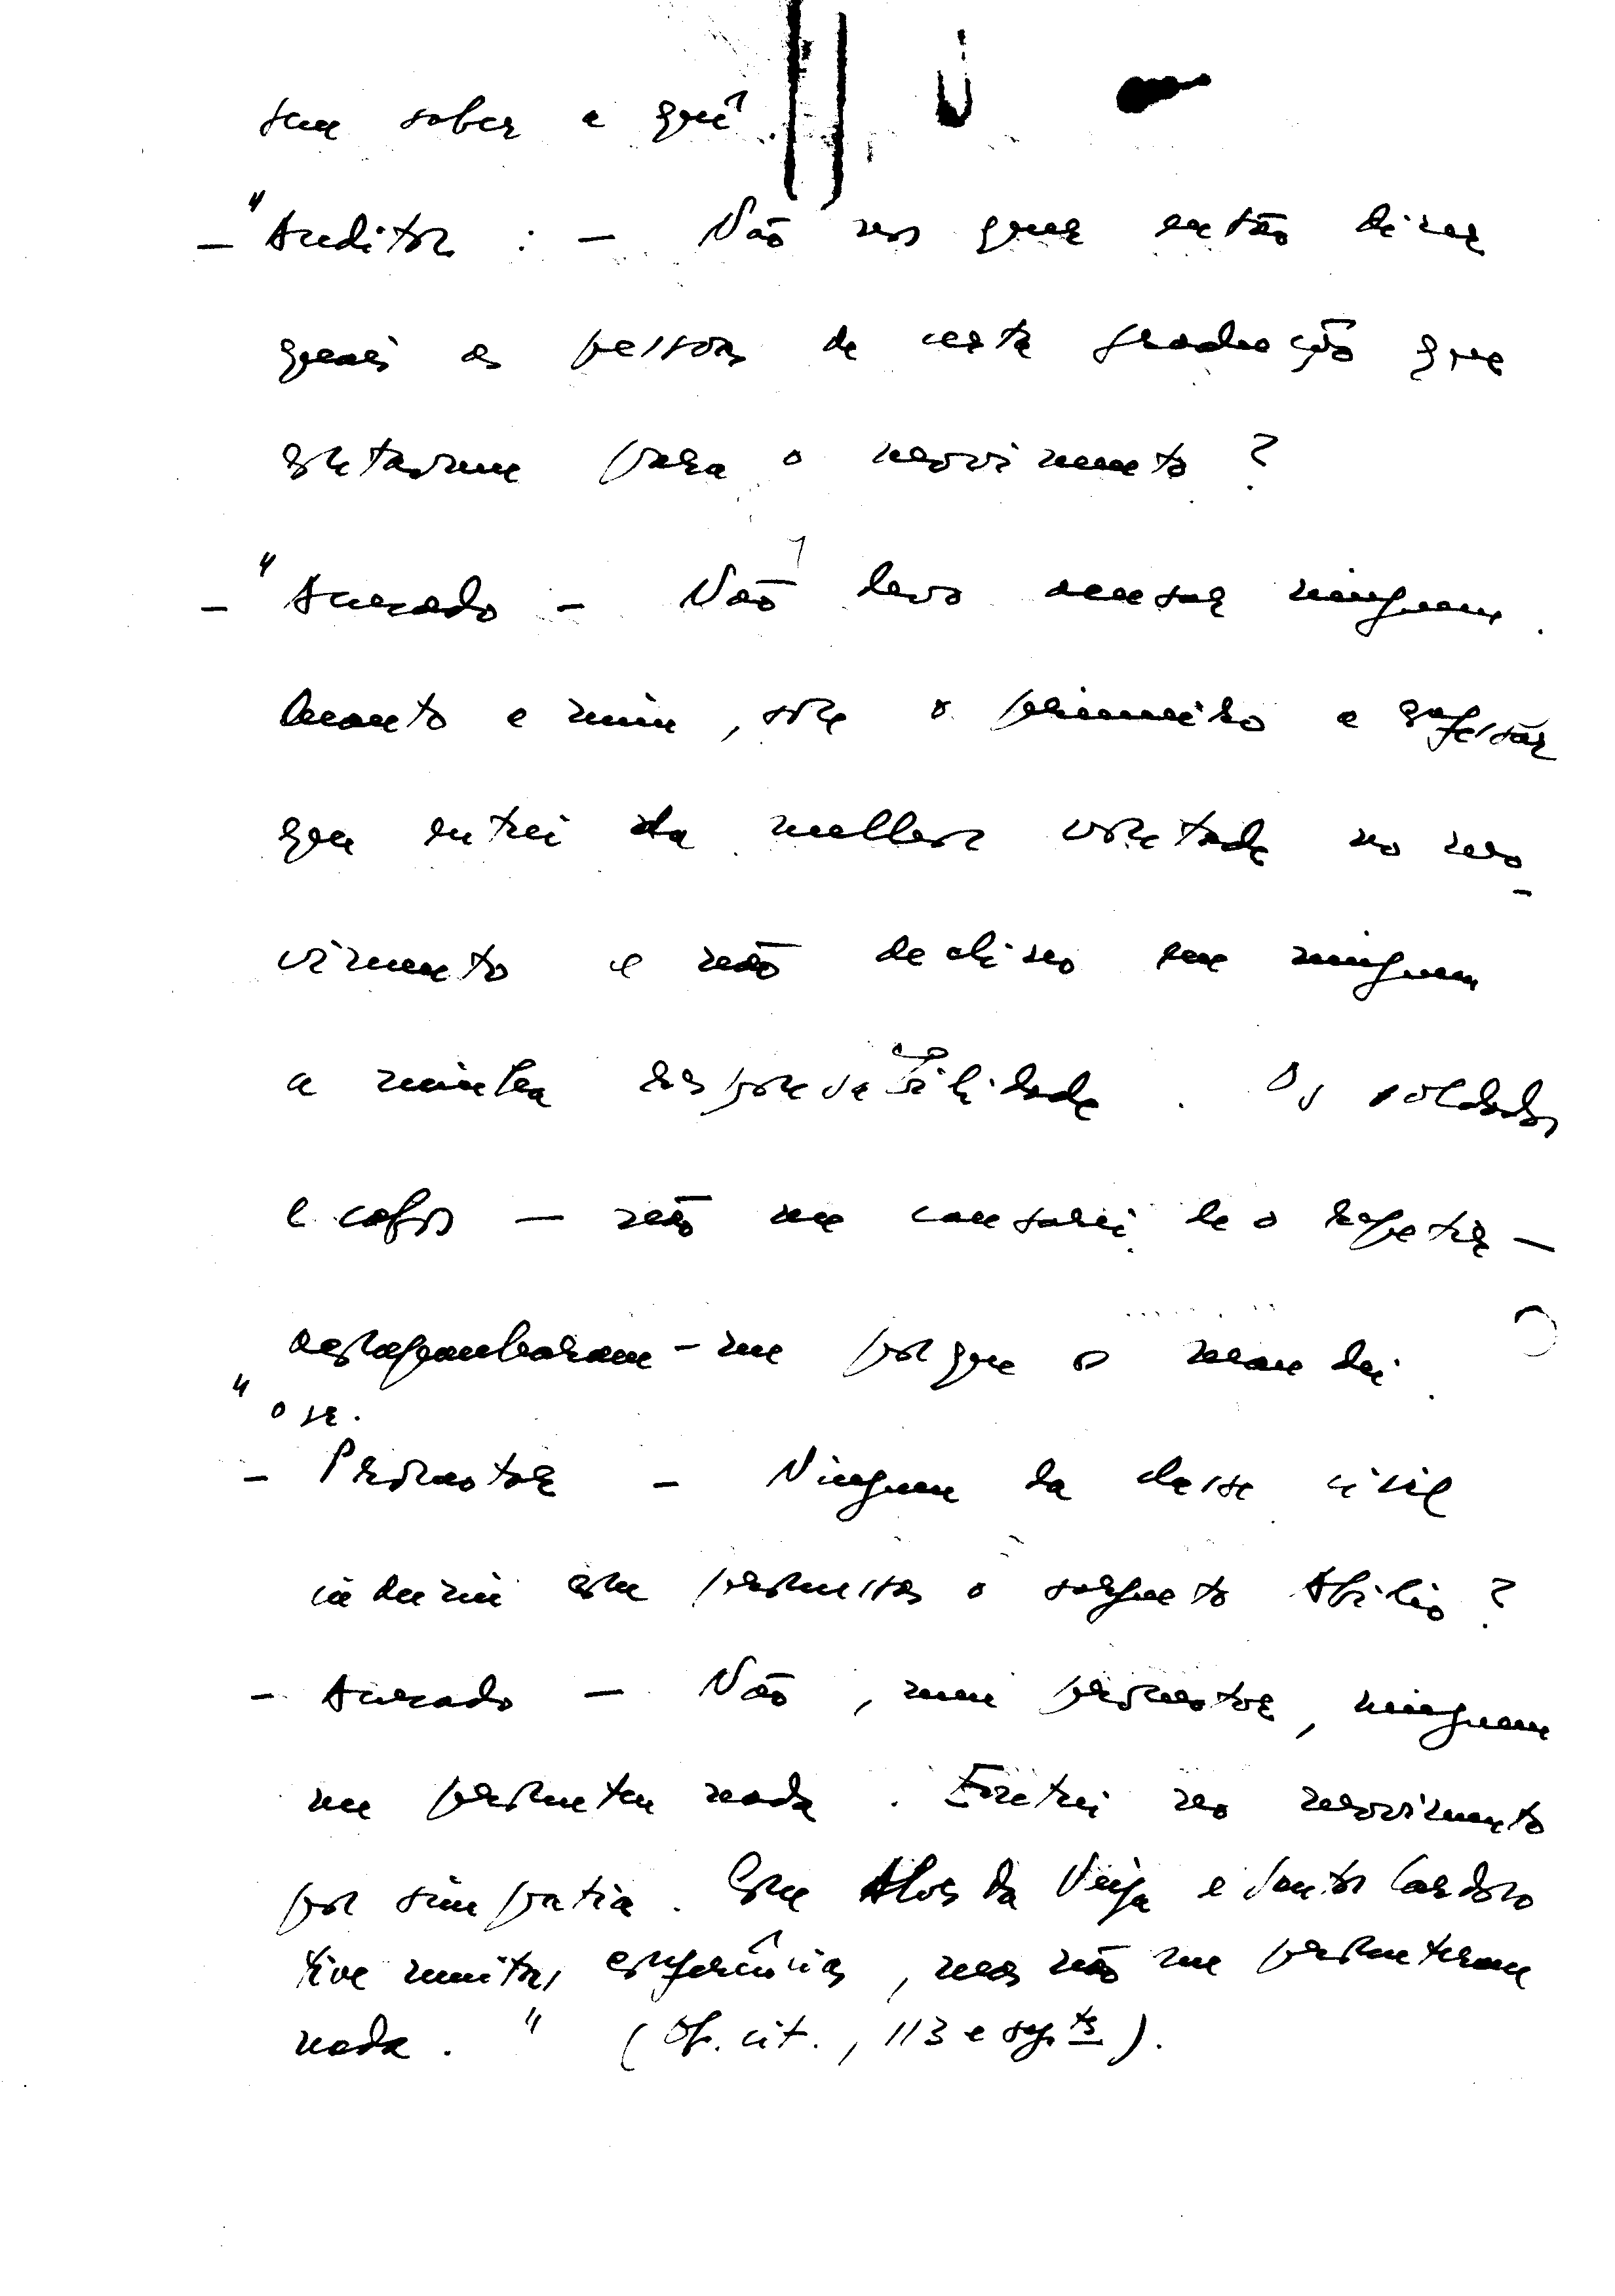 sem saber a quê.
— "Auditor : — Não nos quer então dizer
quais as pessoas de certa graduação que
entavam para o movimento ?
— "Acusado — Não devo acusar ninguem.
Quanto a mim, sou o primeiro a confessar
que entrei da melhor vontade no mo-
vimento e não declino em ninguem
a minha responsabilidade. Os soldados
e cabos — não me cansarei de o repetir —
acompanharam-me porque os mandei.
"
— Promotor — Ninguem da classe civil
induziu com promessas o sargento Abilio ?
— Acusado — Não, meu promotor, ninguem
me prometeu nada. Entrei no movimento
por simpatia. Com Alves da Veiga e Santos Cardoso
tive muitas conferências, mas não me prometeram
nada. " (Op. cit., 113 e segts).